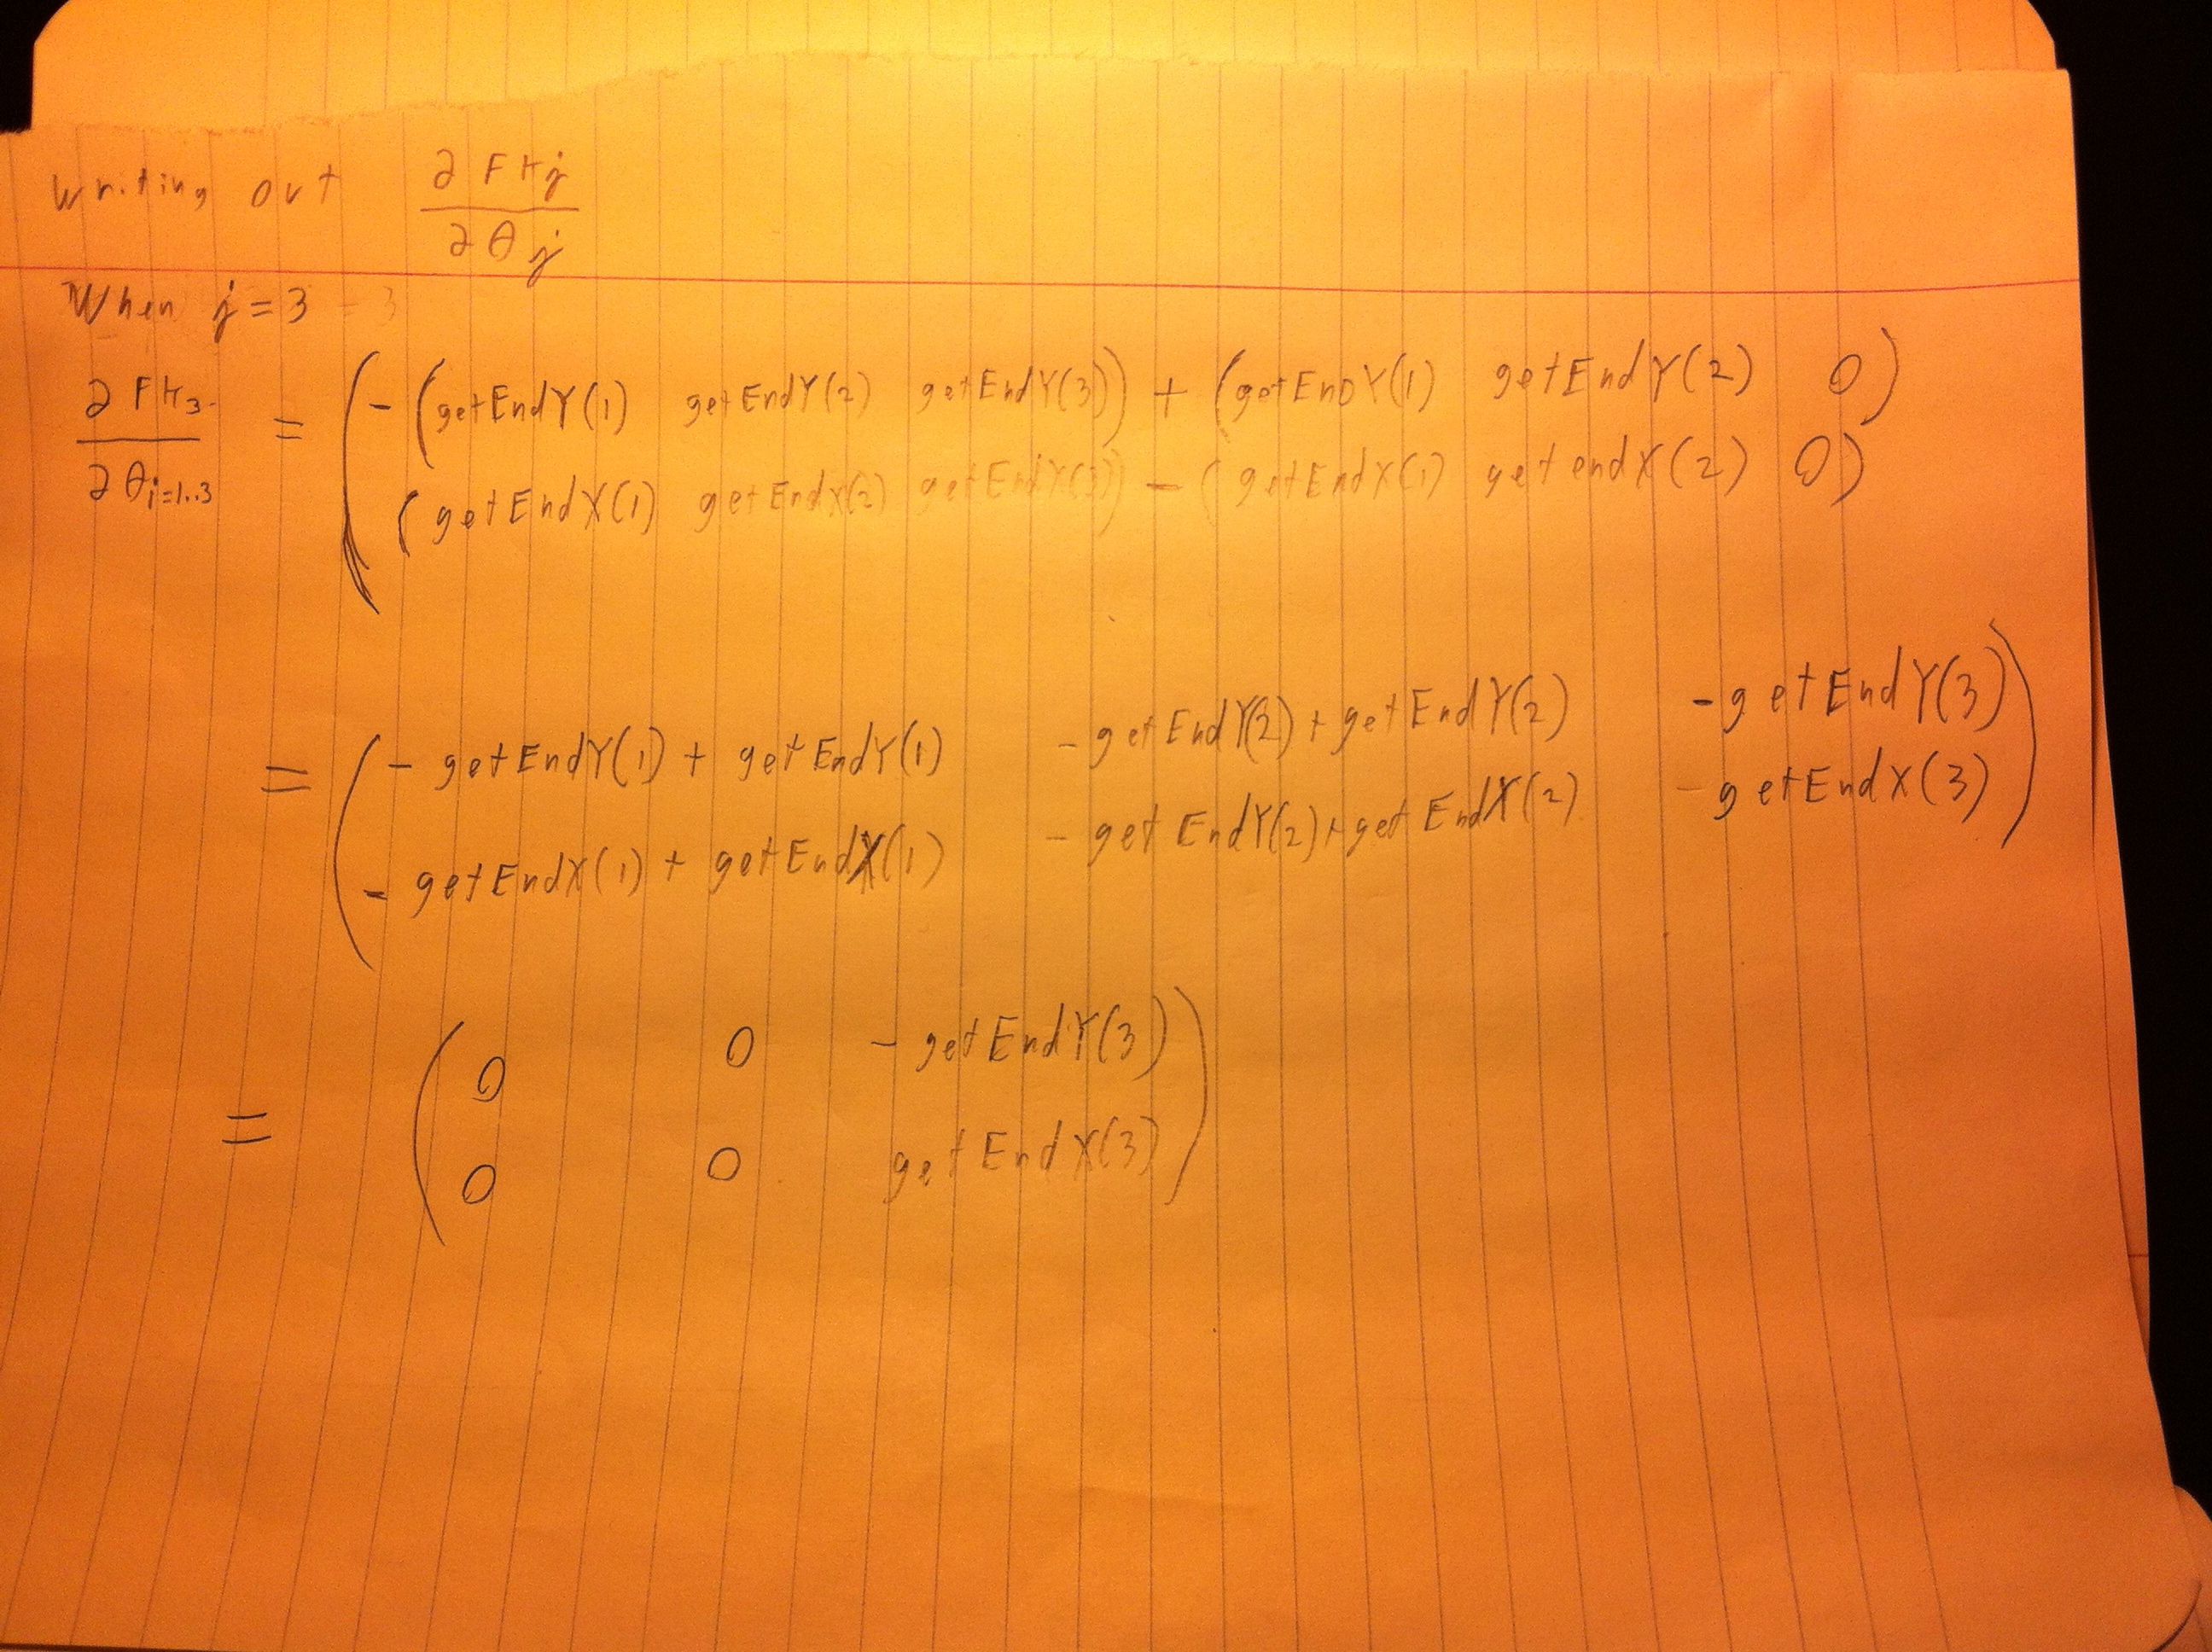 Writing out ∂FKj / ∂θj
When j = 3
∂FK3 / ∂θi=1..3 = ( - (getEndY(1) getEndY(2) getEndY(3)) + (getEndY(1) getEndY(2) 0)
(getEndX(1) getEndX(2) getEndX(3)) - (getEndX(1) getendX(2) 0)
= ( - getEndY(1) + getEndY(1) - getEndY(2) + getEndY(2) - getEndY(3) )
- getEndX(1) + getEndX(1) - getEndY(2) + getEndX(2) - getEndX(3)
= ( 0 0 - getEndY(3) )
0 0 getEndX(3)